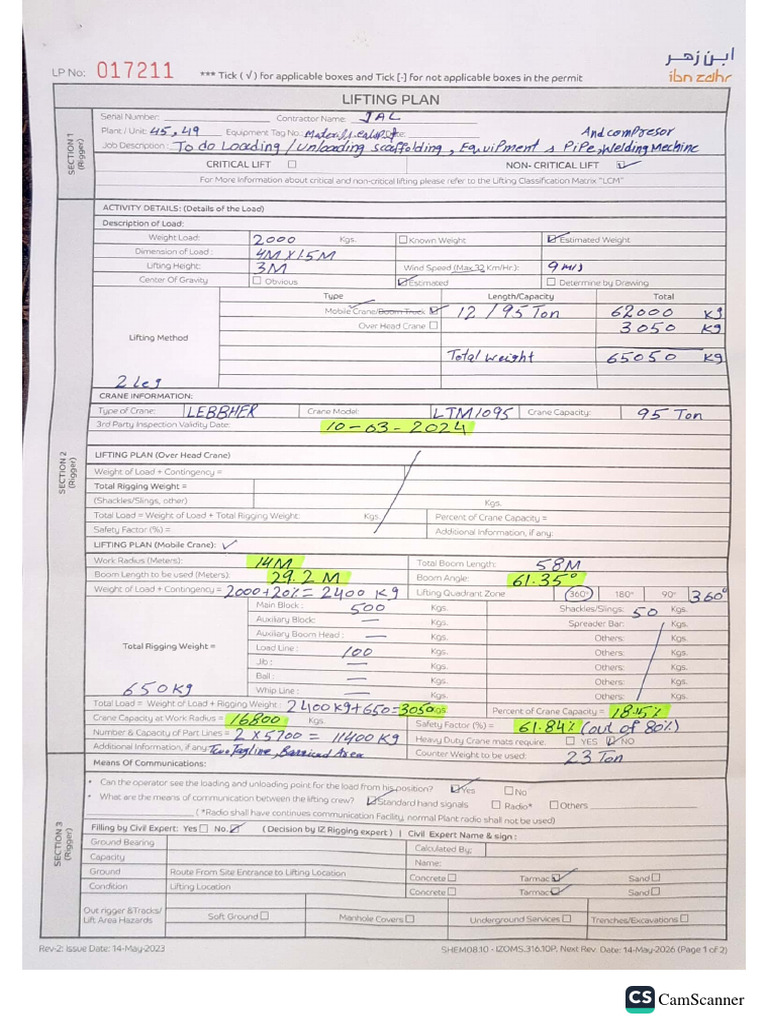 ابن زهر
ibn zahr
LP No: 017211 *** Tick (√) for applicable boxes and Tick [-] for not applicable boxes in the permit
LIFTING PLAN
SECTION 1
(Rigger)
Serial Number: Contractor Name: JAL
Plant / Unit: 45, 49 Equipment Tag No.:
And compresor
Job Description: To do Loading / Unloading Scaffolding, Equipment s PiPe, Welding Mechine
CRITICAL LIFT ☐ NON- CRITICAL LIFT ☑
For More Information about critical and non-critical lifting please refer to the Lifting Classification Matrix "LCM"
SECTION 2
(Rigger)
ACTIVITY DETAILS: (Details of the Load)
Description of Load:
Weight Load: 2000 Kgs. ☐ Known Weight ☑ Estimated Weight
Dimension of Load: 4M X 1.5M
Lifting Height: 3M Wind Speed (Max 32 Km/Hr.): 9 m/s
Center Of Gravity ☐ Obvious ☑ Estimated ☐ Determine by Drawing
Type Length/Capacity Total
Mobile Crane/Boom Truck ☑ 12 / 95 Ton 62000 kg
Over Head Crane ☐ 3050 kg
Lifting Method
Total weight 65050 kg
2 Leg
CRANE INFORMATION:
Type of Crane: LEBBHER Crane Model: LTM1095 Crane Capacity: 95 Ton
3rd Party Inspection Validity Date: 10-03-2024
LIFTING PLAN (Over Head Crane)
Weight of Load + Contingency =
Total Rigging Weight =
(Shackles/Slings, other) Kgs.
Total Load = Weight of Load + Total Rigging Weight: Kgs. Percent of Crane Capacity =
Safety Factor (%) = Additional Information, if any:
LIFTING PLAN (Mobile Crane): ✓
Work Radius (Meters): 14M Total Boom Length: 58M
Boom Length to be used (Meters): 29.2 M Boom Angle: 61.35°
Weight of Load + Contingency = 2000+20% = 2400 Kg Lifting Quadrant Zone 360° 180° 90° 360°
Main Block : 500 Kgs. Shackles/Slings: 50 Kgs.
Auxiliary Block: — Kgs. Spreader Bar: Kgs.
Auxiliary Boom Head : — Kgs. Others: Kgs.
Total Rigging Weight = Load Line : 100 Kgs. Others: Kgs.
Jib : — Kgs. Others: Kgs.
Ball : — Kgs. Others: Kgs.
650 Kg Whip Line : — Kgs. Others: Kgs.
Total Load = Weight of Load + Rigging Weight : 2400 Kg+650=3050 Kgs. Percent of Crane Capacity = 18.45%
Crane Capacity at Work Radius = 16800 Kgs. Safety Factor (%) = 61.84% (out of 80%)
Number & Capacity of Part Lines = 2 X 5700 = 11400 KG Heavy Duty Crane mats require. ☐ YES ☑ NO
Additional Information, if any: Two Tagline, Barricad Area Counter Weight to be used: 23 Ton
SECTION 3
(Rigger)
Means Of Communications:
• Can the operator see the loading and unloading point for the load from his position? ☑ Yes ☐ No
• What are the means of communication between the lifting crew? ☑ Standard hand signals ☐ Radio* ☐ Others
( *Radio shall have continues communication Facility, normal Plant radio shall not be used)
Filling by Civil Expert: Yes ☐ No. ☑ ( Decision by IZ Rigging expert ) | Civil Expert Name & sign :
Ground Bearing Calculated By:
Capacity Name:
Ground Route From Site Entrance to Lifting Location Concrete ☐ Tarmac ☑ Sand ☐
Condition Lifting Location Concrete ☐ Tarmac ☑ Sand ☐
Out rigger &Tracks/
Lift Area Hazards Soft Ground ☐ Manhole Covers ☐ Underground Services ☐ Trenches/Excavations ☐
Rev-2: Issue Date: 14-May-2023 SHEM08.10 - IZOMS.316.10P, Next Rev. Date: 14-May-2026 (Page 1 of 2)
CS CamScanner